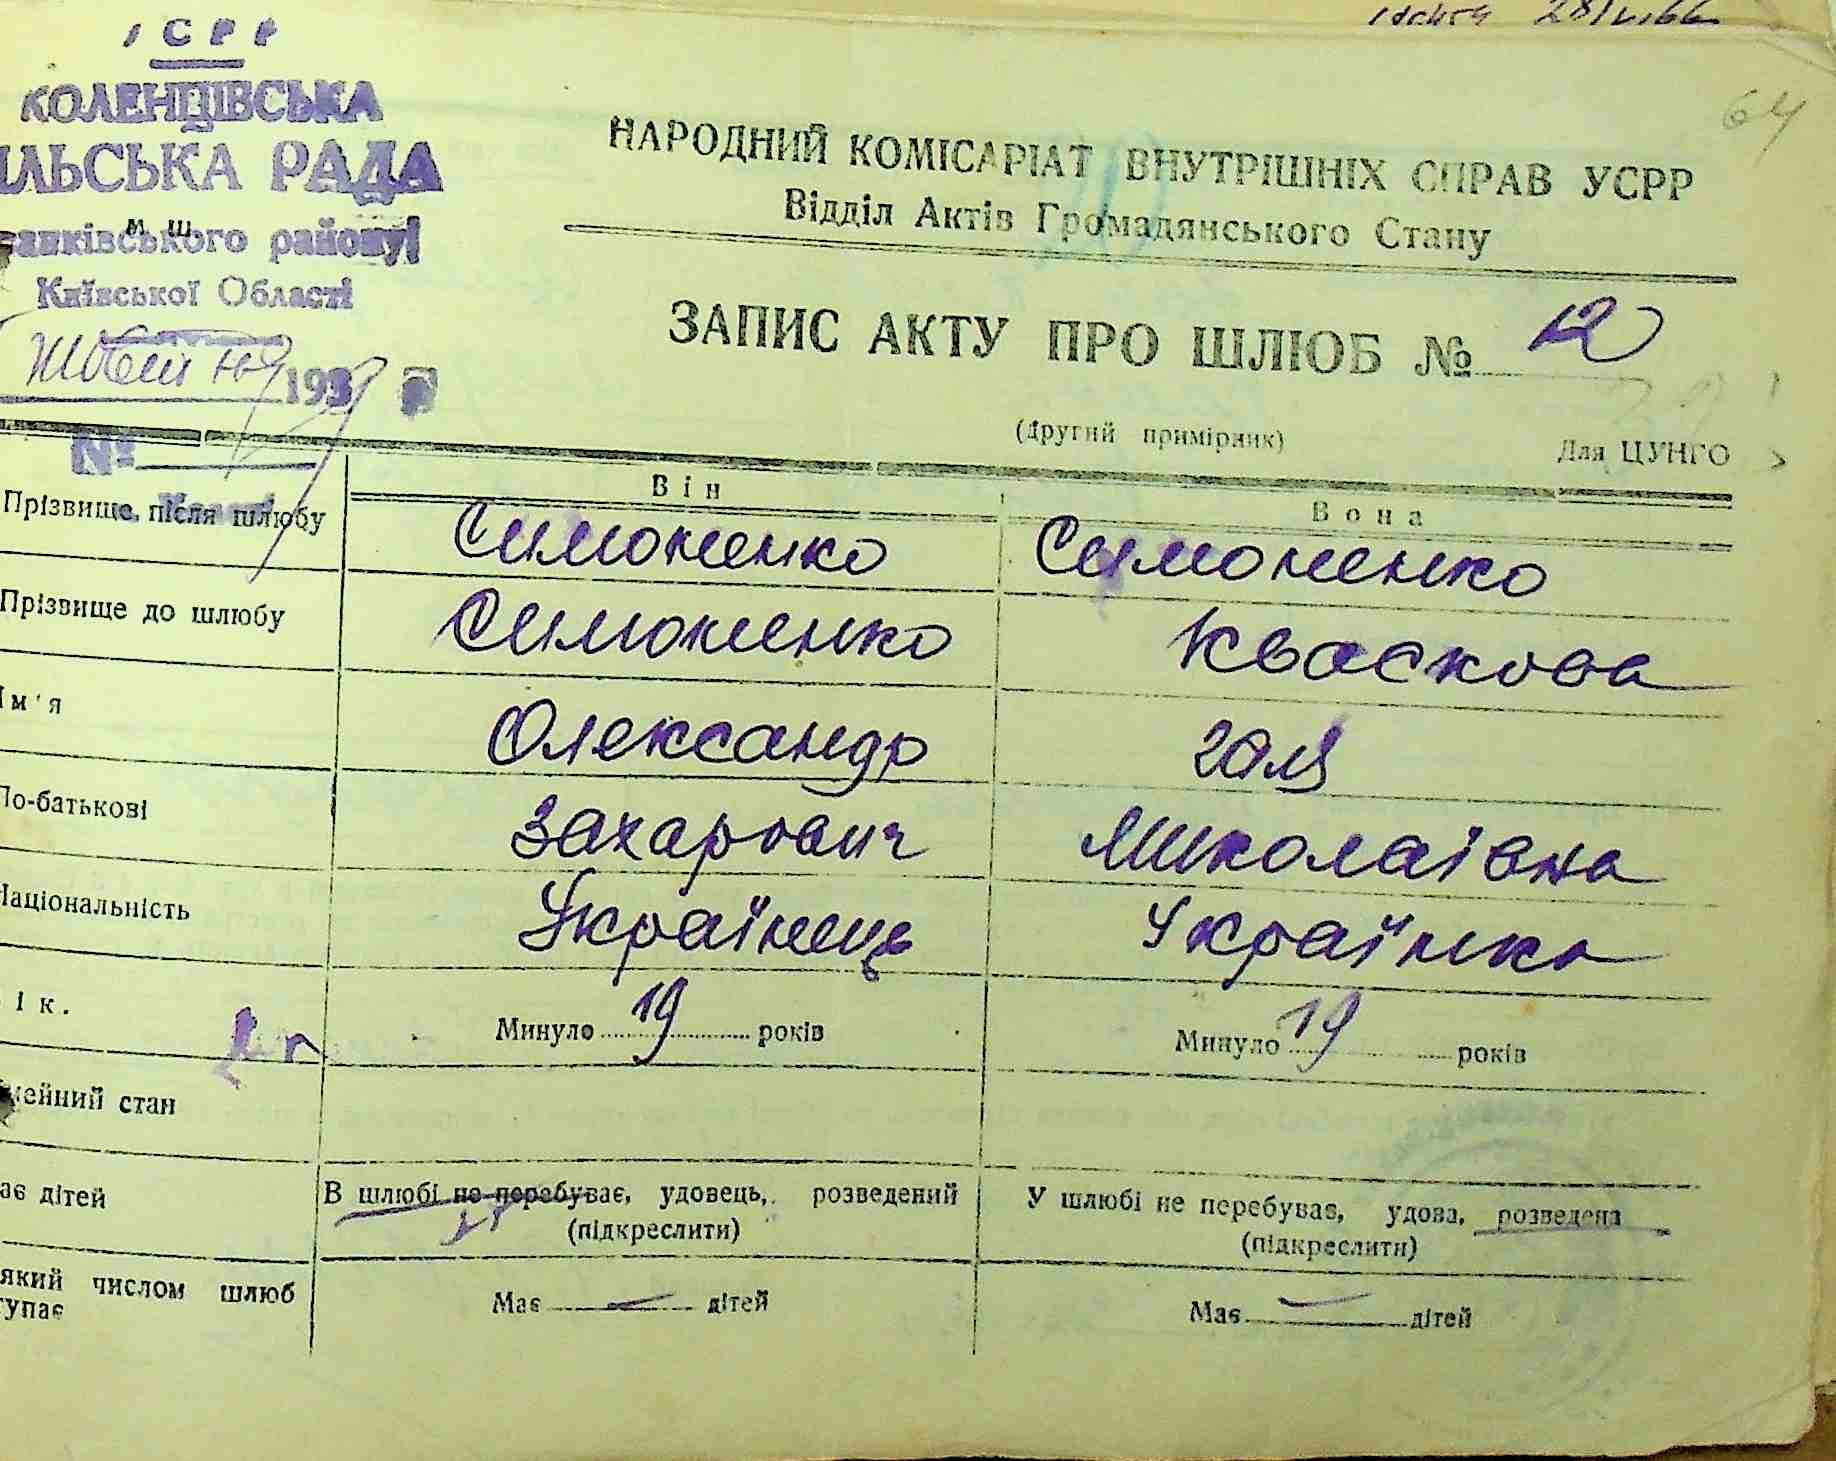 УСРР
КОЛЕНЦІВСЬКА
СІЛЬСЬКА РАДА
м. ш.
Іванківського району
Київської Області
193
№
64
НАРОДНИЙ КОМІСАРІАТ ВНУТРІШНІХ СПРАВ УСРР
Відділ Актів Громадянського Стану
ЗАПИС АКТУ ПРО ШЛЮБ № 12
(другий примірник) Для ЦУНГО
Він Вона
Прізвище після шлюбу Симоненко Симоненко
Прізвище до шлюбу Симоненко Кваскова
Ім'я Олександр Галя
По-батькові Захарович Миколаівна
Національність Українець Українка
Вік. Минуло 19 років Минуло 19 років
мейний стан
ає дітей В шлюбі не перебуває, удовець, розведений У шлюбі не перебуває, удова, розведена
(підкреслити) (підкреслити)
який числом шлюб
тупає Має — дітей Має — дітей